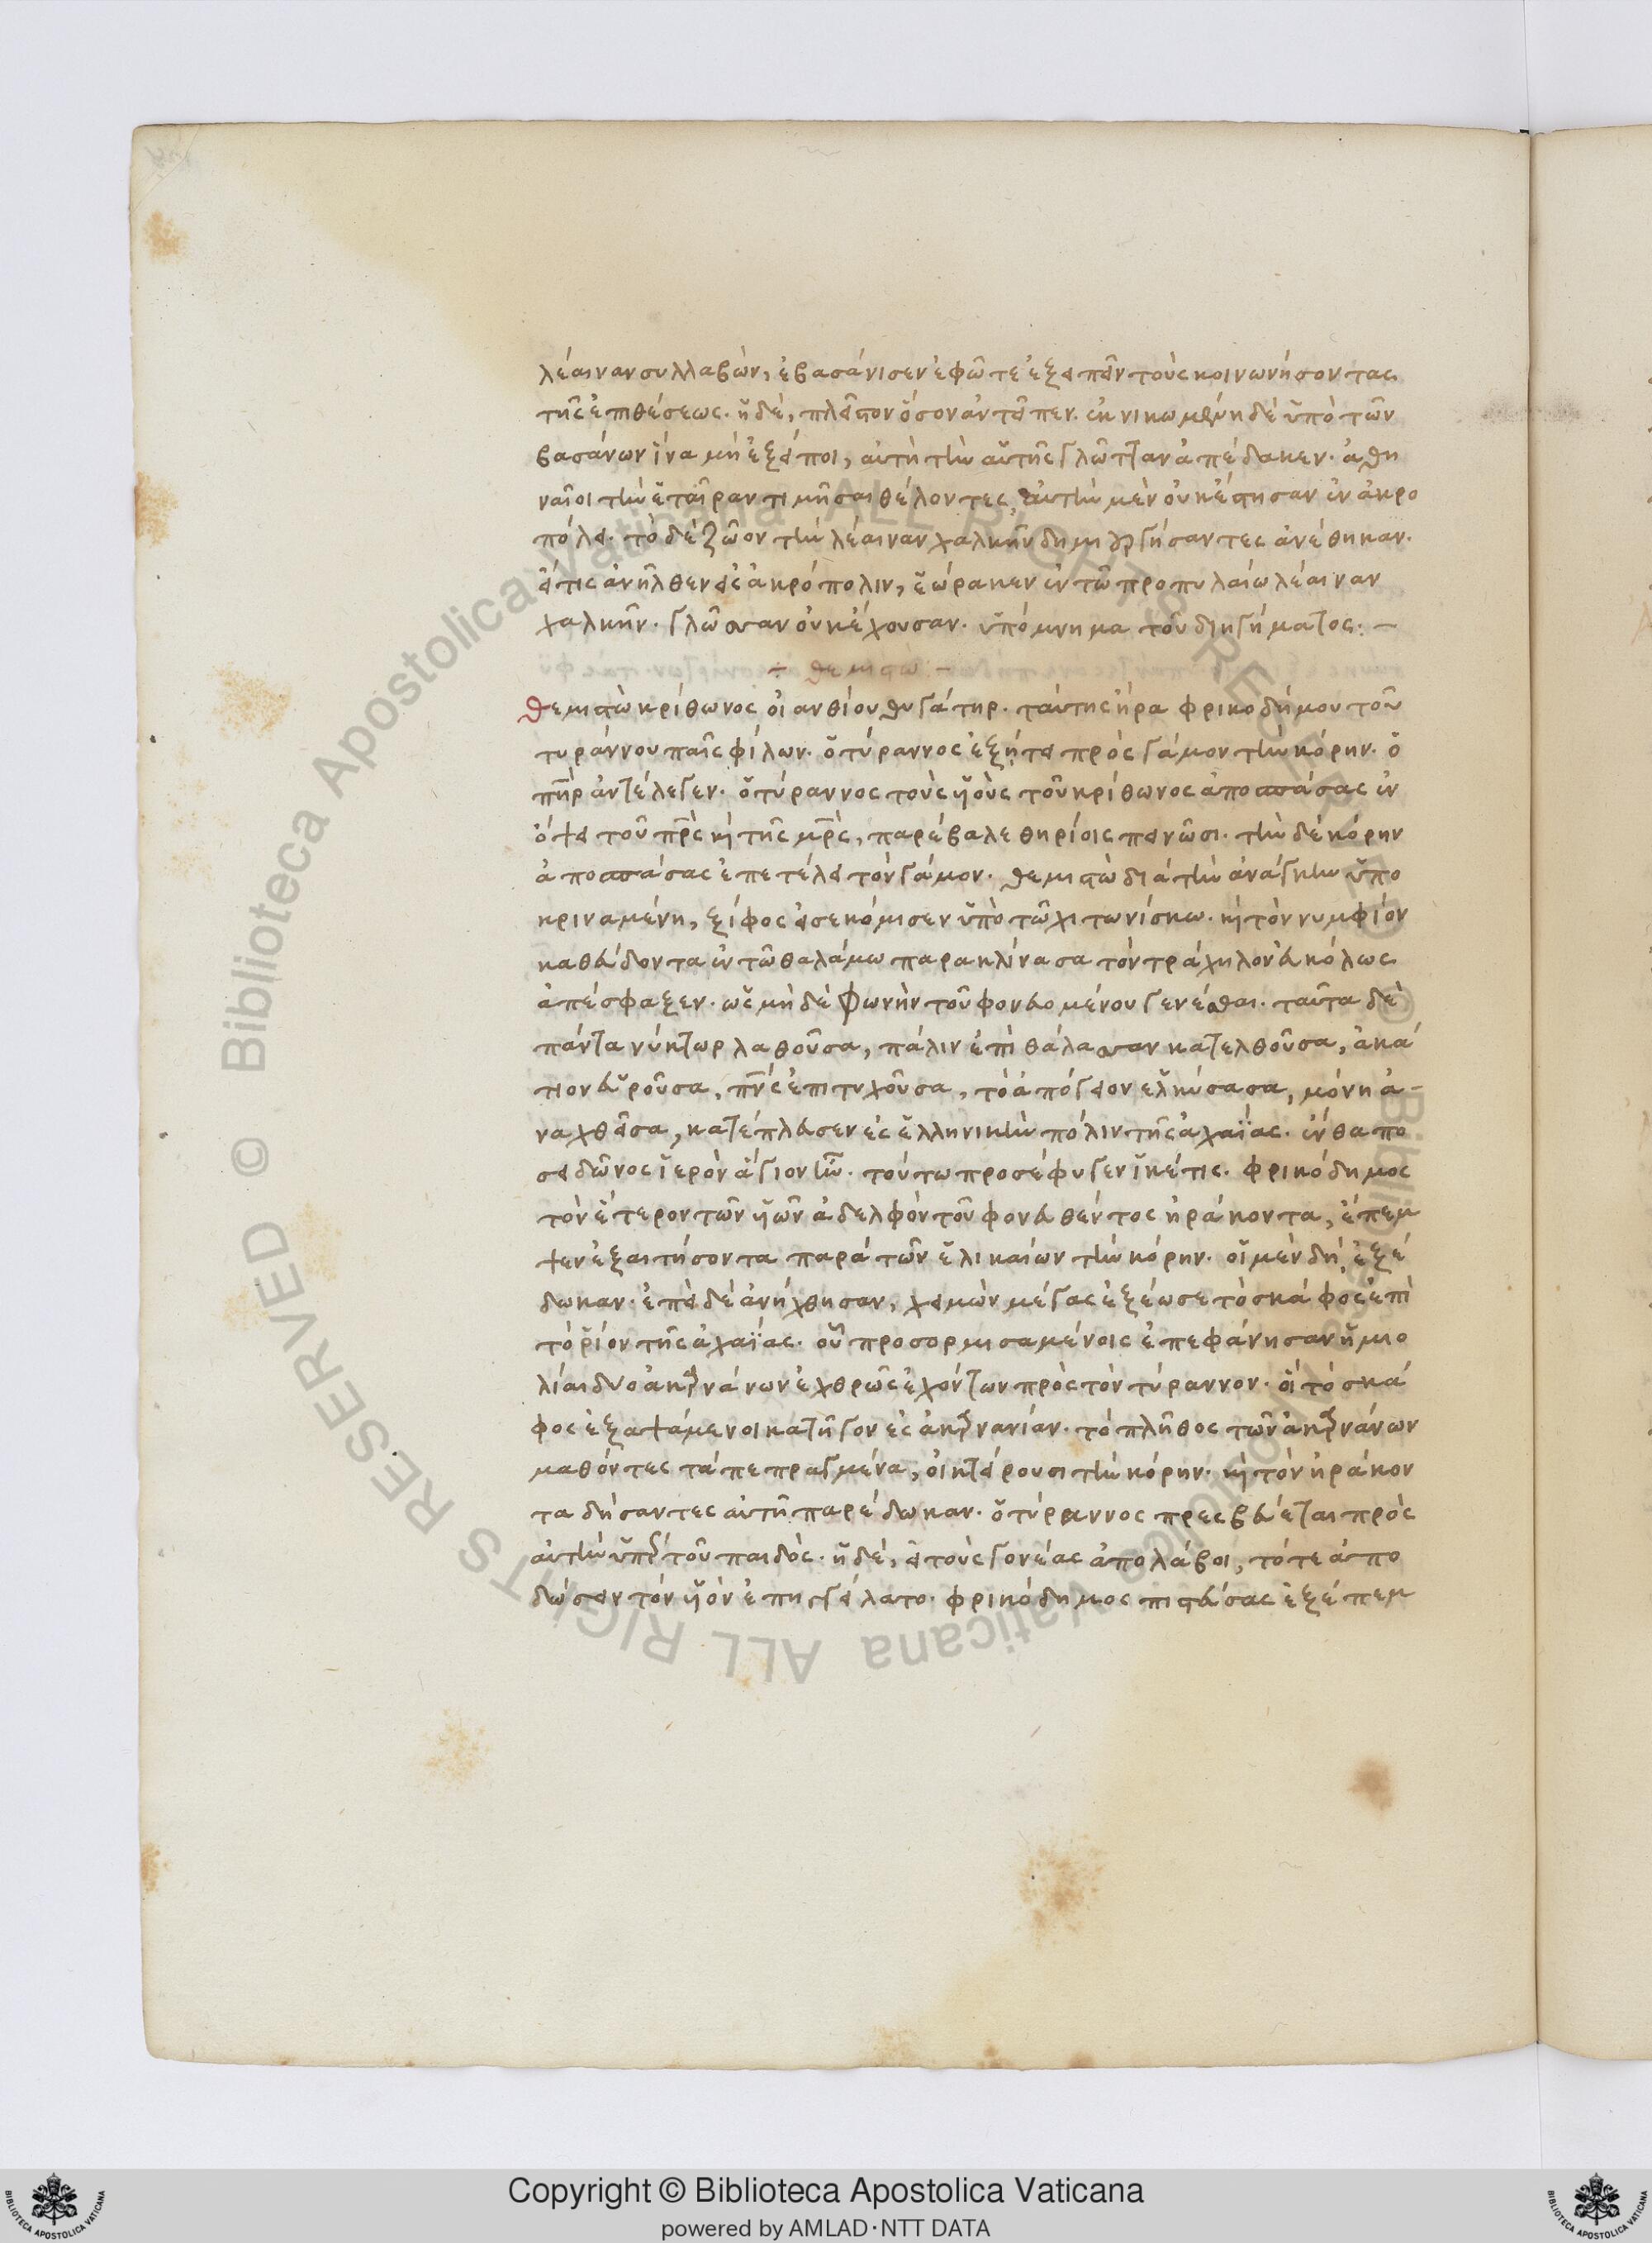 λέαιναν συλλαβὼν, ἐβασάνισεν ἐφῶ τε ἐξειπεῖν τοὺς κοινωνήσοντας
τῆς ἐπιθέσεως. ἡ δὲ, πλεῖστον ὅσον ἀντεῖπεν. ἐκνικωμένη δὲ ὑπὸ τῶν
βασάνων ἵνα μὴ ἐξείποι, αὐτὴ τὴν αὑτῆς γλῶτταν ἀπέδακεν. ἀθη
ναῖοι τὴν ἑταῖραν τιμῆσαι θέλοντες, αὐτὴν μὲν οὐκ ἔστησαν ἐν ἀκρο
πόλει. τὸ δὲ ζῶον τὴν λέαιναν χαλκῆν δημιουργήσαντες ἀνέθηκαν.
εἴ τις ἀνῆλθεν εἰς ἀκρόπολιν, ἑώρακεν ἐν τῶ προπυλαίω λέαιναν
χαλκῆν. γλῶσσαν οὐκ ἔχουσαν. ὑπόμνημα τοῦ διηγήματος. –
÷ θεμιστώ –
Θεμιστὼ κρίθωνος οἰανθίου θυγάτηρ. ταύτης ἤρα φρικοδήμου τοῦ
τυράννου παῖς φίλων. ὁ τύραννος ἐξήτει πρὸς γάμον τὴν κόρην. ὁ
πὴρ ἀντέλεγεν. ὁ τύραννος τοὺς ὑοὺς τοῦ κρίθωνος ἀποσπάσας ἐν
ὄψει τοῦ πρς κ τῆς μρς, παρέβαλε θηρίοις πεινῶσι. τὴν δὲ κόρην
ἀποσπάσας ἐπετέλει τὸν γάμον. θεμιστὼ διὰ τὴν ἀνάγκην ὑπο
κριναμένη, ξίφος εἰσεκόμισεν ὑπὸ τῶ χιτωνίσκω. κ τὸν νυμφίον
καθεύδοντα ἐν τῶ θαλάμω παρακλίνασα τὸν τράχηλον εὐκόλως
ἀπέσφαξεν. ὡς μὴ δὲ φωνὴν τοῦ φονευομένου γενέσθαι. ταῦτα δὲ
πάντα νύκτωρ λαθοῦσα, πάλιν ἐπὶ θάλασσαν κατελθοῦσα, ἀκά
τιον εὑροῦσα, πνς ἐπιτυχοῦσα, τὸ ἀπόγειον ἑλκύσασα, μόνη ἀ-
ναχθεῖσα, κατέπλευσεν ἐς ἑλληνικὴν πόλιν τῆς ἀχαΐας. ἔνθα πο
σειδῶνος ἱερὸν ἅγιον ἦν. τούτω προσέφυγεν ἱκέτις. φρικόδημος
τὸν ἕτερον τῶν ὑῶν ἀδελφὸν τοῦ φονευθέντος ἡράκοντα, ἔπεμ
ψεν ἐξαιτήσοντα παρὰ τῶν ἑλικαίων τὴν κόρην. οἱ μὲν δὴ, ἐξέ
δωκαν. ἐπεὶ δὲ ἀνήχθησαν, χειμὼν μέγας ἐξέωσε τὸ σκάφος ἐπὶ
τὸ ῥίον τῆς ἀχαΐας. οὗ προσορμισαμένοις ἐπεφάνησαν ἡμιο
λίαι δύο ἀκαρνάνων ἐχθρῶς ἐχόντων πρὸς τὸν τύραννον. οἳ τὸ σκά
φος ἐξαψάμενοι κατῆγον ἐς ἀκαρνανίαν. τὸ πλῆθος τῶν ἀκαρνάνων
μαθόντες τὰ πεπραγμένα, οἰκτείρουσι τὴν κόρην. κ τὸν ἡράκον
τα δήσαντες αὐτῆ παρέδωκαν. ὁ τύραννος πρεσβεύεται πρὸς
αὐτὴν ὑπὲρ τοῦ παιδὸς. ἡ δὲ, εἰ τοὺς γονέας ἀπολάβοι, τότε ἀπο
δώσειν τὸν ὑὸν ἐπηγγείλατο. φρικόδημος πιστεύσας ἐξέπεμ
© Biblioteca Apostolica Vaticana ALL RIGHTS RESERVED
Copyright © Biblioteca Apostolica Vaticana
powered by AMLAD·NTT DATA